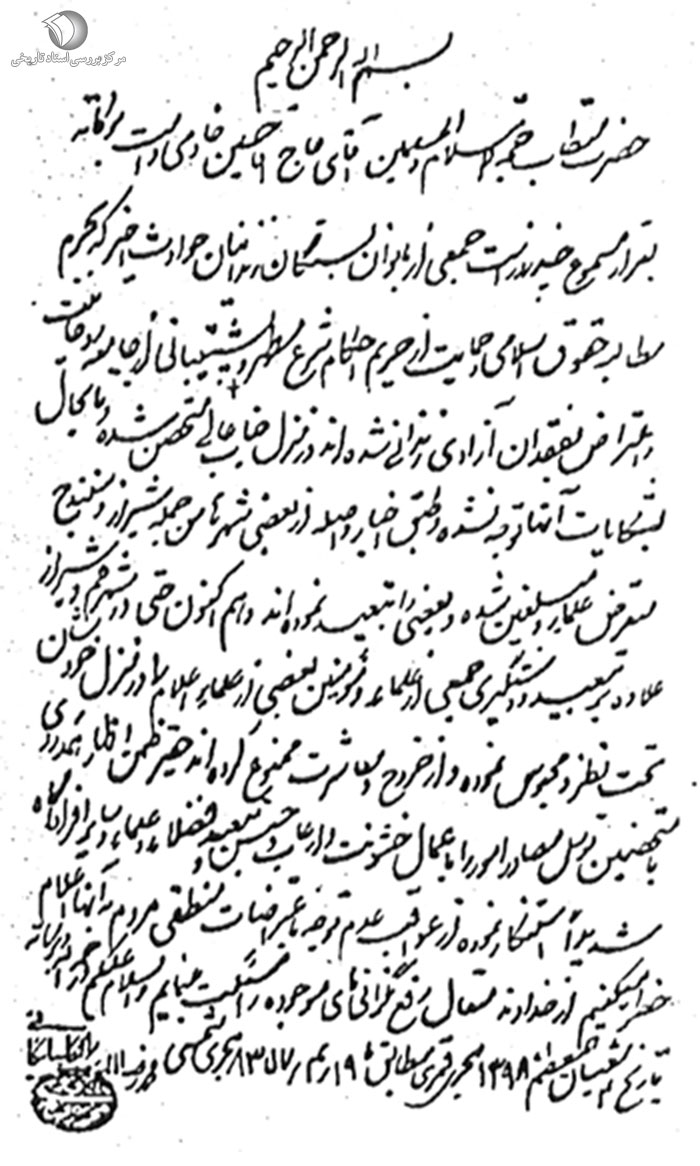 مرکز بررسی اسناد تاریخی
بسم الله الرحمن الرحیم
حضرت مستطاب حجة الاسلام والمسلمین آقای حاج آقا حسین خادمی دامت برکاته
بقرار مسموع چند روز است جمعی از بانوان بستگان زندانیان حوادث اخیر که بجرم
مطالبه حقوق اسلامی و حمایت از حریم احکام شرع مطهر و پشتیبانی از جامعه روحانیت
و اعتراض بفقدان آزادی زندانی شده اند در منزل جناب عالی متحصن شده و تا بحال
بشکایات آنها توجه نشده و طبق اخبار واصله از بعضی شهرها من جمله شیراز و سنندج
متعرض علماء و مبلغین شده و بعضی را تبعید نموده اند و هم اکنون حتی در شهر قم و شیراز
علاوه بر تبعید و دستگیری جمعی از علماء و مؤمنین بعضی از علماء اعلام را در منزل خودشان
تحت نظر و محبوس نموده و از خروج و معاشرت ممنوع کرده اند حقیر ضمن اظهار همدردی
با متحصنین توسل مصادر امور را باعمال خشونت و ارعاب و حبس و تبعید فضلاء و علماء و سایر افراد آگاه
شدیداً استنکار نموده از عواقب عدم توجه باعتراضات منطقی مردم به آنها اعلام
خطر میکنیم از خداوند متعال رفع نگرانی‌های موجوده را مسئلت مینمایم والسلام علیکم و رحمة الله و برکاته
بتاریخ شعبان المعظم ۱۳۹۸ هجری قمری مطابق هجری شمسی